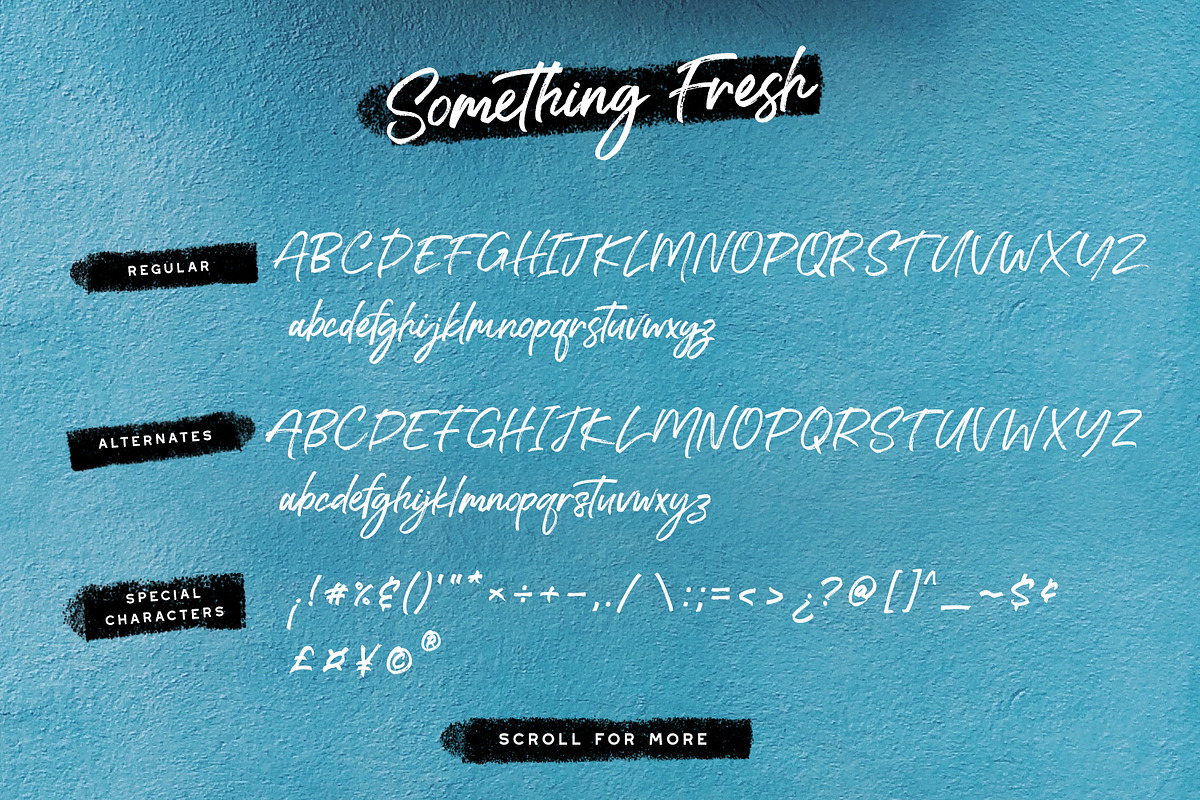 Something Fresh
REGULAR
ABCDEFGHIJKLMNOPQRSTUVWXYZ
abcdefghijklmnopqrstuvwxyz
ALTERNATES
ABCDEFGHIJKLMNOPQRSTUVWXYZ
abcdefghijklmnopqrstuvwxyz
SPECIAL
CHARACTERS
¡!#%&()'"*×÷+−,./\:;=<>¿?@[]^_~$¢
£¤¥©®
SCROLL FOR MORE